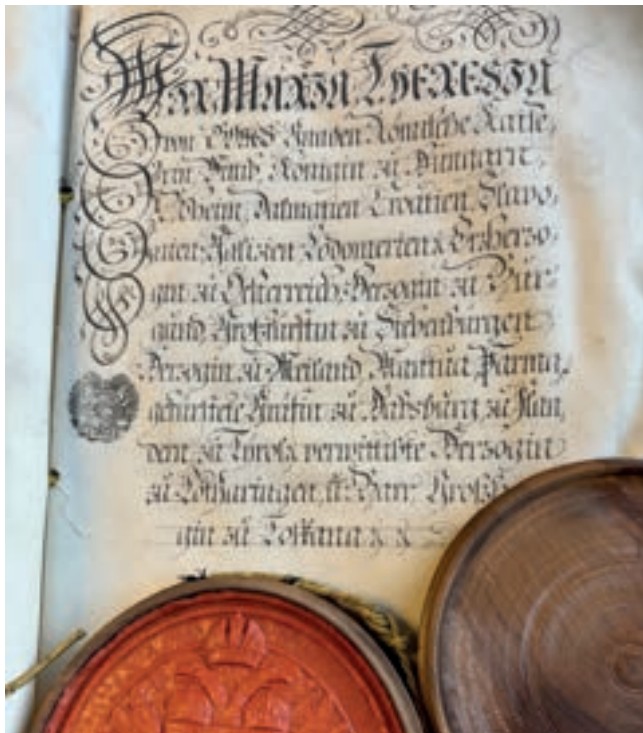 Wir Maria Theresia
von Gottes Gnaden Römische Kaise,
rin Wittib, Königin zu Hungarn,
Böheim, Dalmatien, Croatien, Slavo,
nien, Galizien, Lodomerien x Erzherzo,
gin zu Österreich, Herzogin zu Bur,
gund, Großfürstin zu Siebenbürgen
Herzogin zu Meiland, Mantua, Parma,
gefürstete Gräfin zu Habsburg, zu Flan,
dern, zu Tyrol x verwittibte Herzogin
zu Lothringen, u: Barr Groß
gin zu Toskana x x